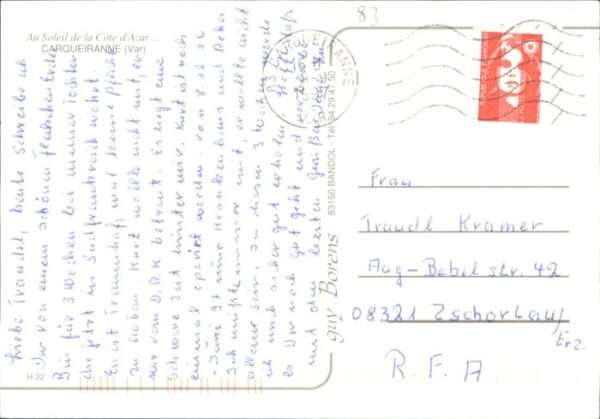 Au Soleil de la Côte d'Azur...
CARQUEIRANNE (Var)
83
Liebe Traudel, heute schreibe ich
Dir von einem schönen Fleckchen Erde
Bin für 3 Wochen bei meiner Tochter
die jetzt in Südfrankreich wohnt.
Es ist Traumhaft, mal keine Pflicht
zu haben. Kurt wollte nicht mit, er
war vom D.R.K betreut. Es liegt eine
schwere Zeit hinter mir. Kurt ist noch
einmal operiert worden. Vom 8.12.96
- Juni 97 nur Krankenhaus und Reha
Ich mußte immer mit, er wollte nicht
allein sein. In diesen 3 Wochen werde
ich mich sicher gut erholen. Hoffe daß
es Dir noch gut geht und
mit den besten
H 22
guy Borens
83150 BANDOL - Tél 94 29 47 50
Frau
Traudl Kramer
Aug-Bebel str. 42
08321 Zschorlau/
Erz.
R.F.A